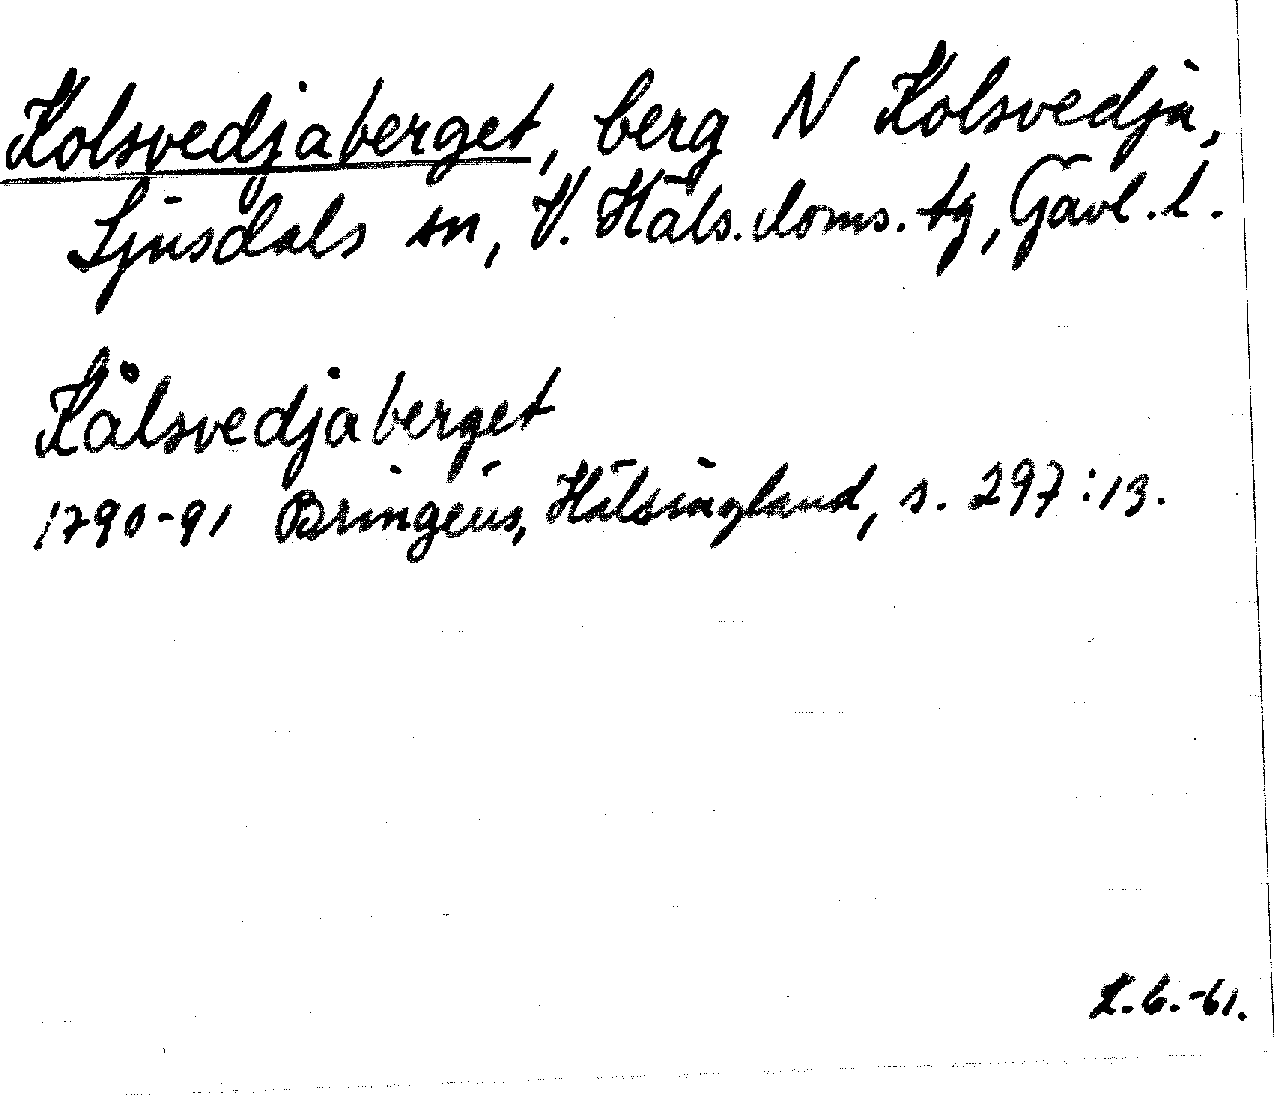 Kolsvedjaberget, berg N Kolsvedja,
Ljusdals sn, V. Häls. doms. tg, Gävl. l.
Kålsvedjaberget
1790-91 Bringéus, Hälsingland, s. 297:13.
L.G.-61.